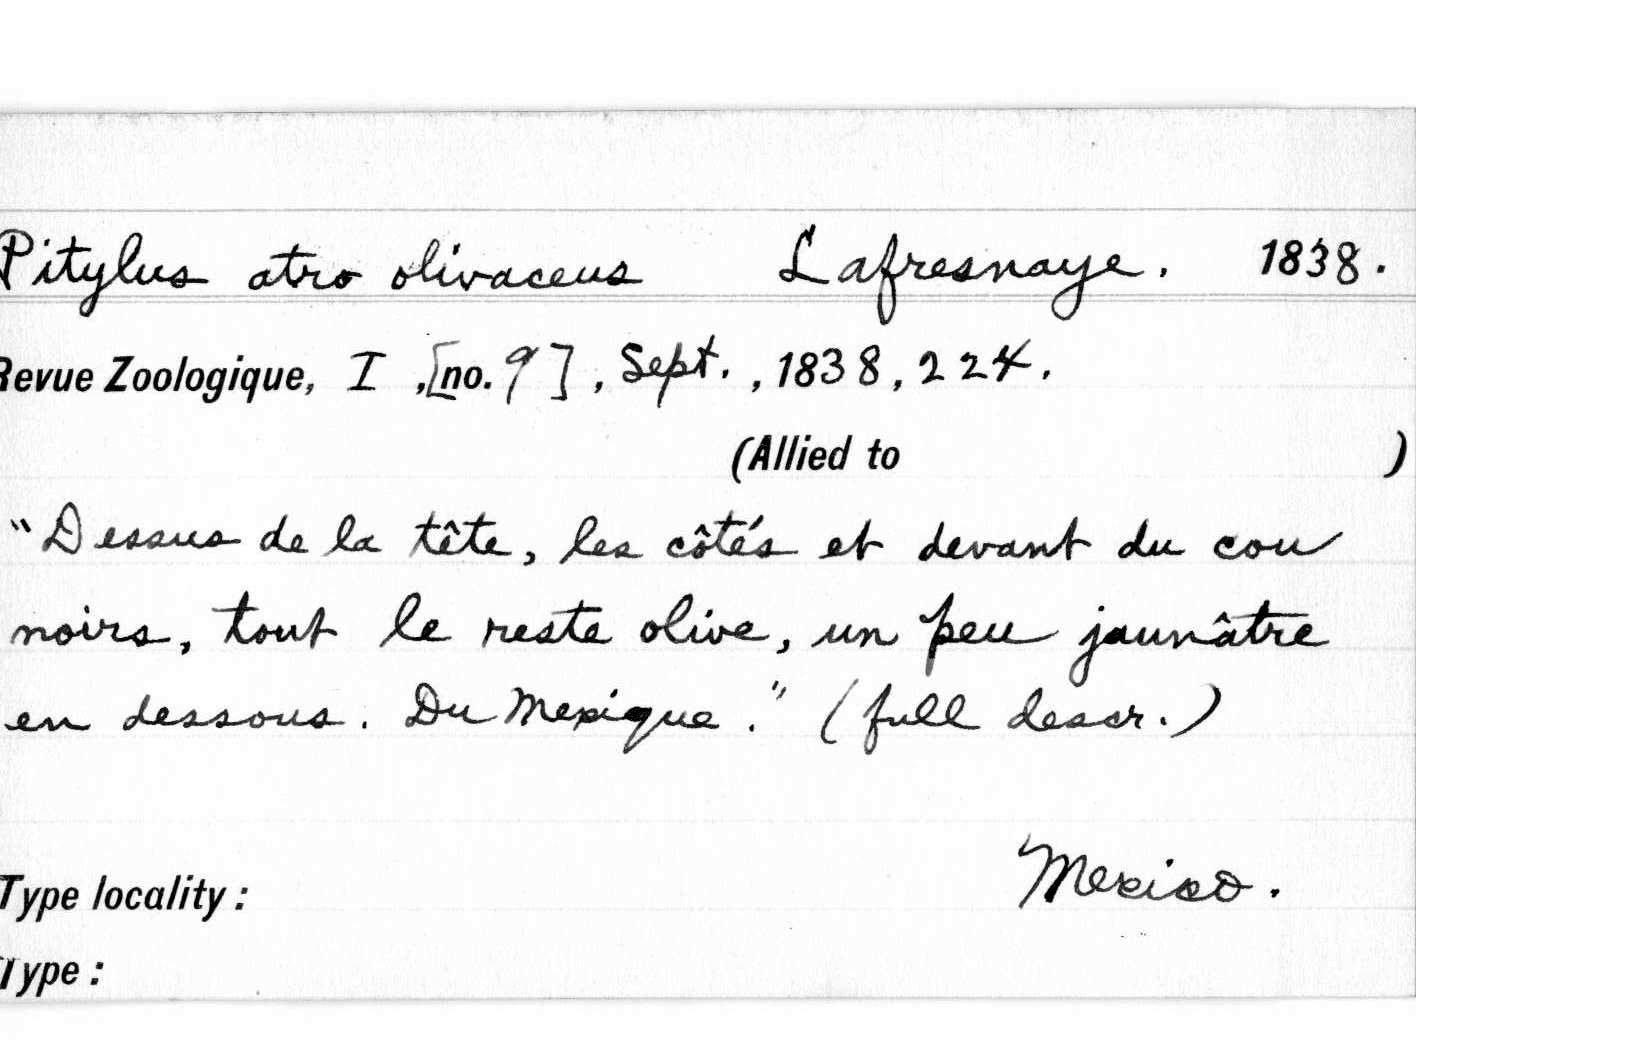 Pitylus atro olivaceus Lafresnaye. 1838.
Revue Zoologique, I ,[no. 9], Sept. , 1838, 224.
(Allied to )
"Dessus de la tête, les côtés et devant du cou
noirs, tout le reste olive, un peu jaunâtre
en dessous. Du Mexique." (full descr.)
Mexico.
Type locality:
Type: